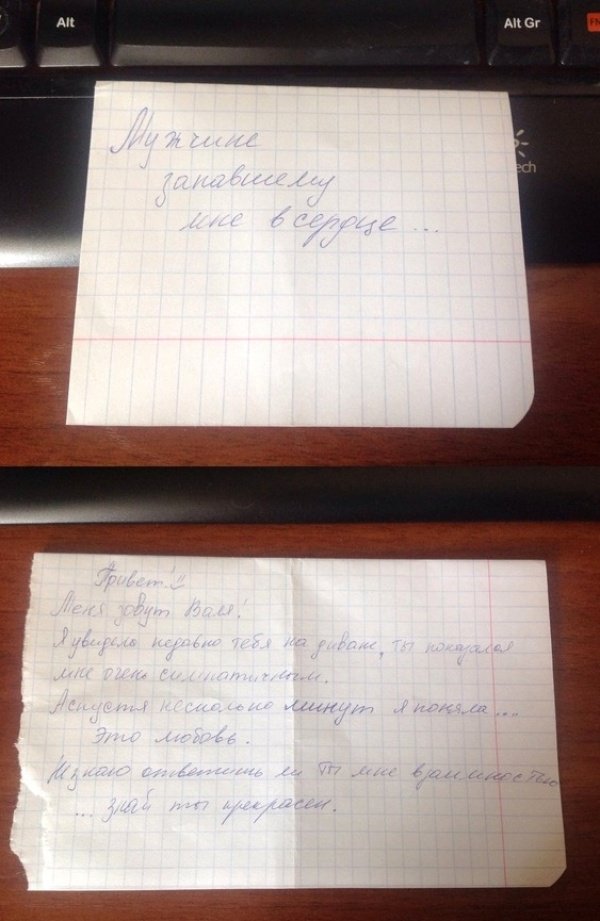 Alt
Alt Gr
FN
ech
Мужчине
запавшему
мне в сердце...
Привет!
Меня зовут Валя!
Я увидела недавно тебя на диване, ты показался
мне очень симпатичным.
А спустя несколько минут я поняла....
Это любовь.
знаю ответишь ли ты мне взаимностью
... знай ты прекрасен.